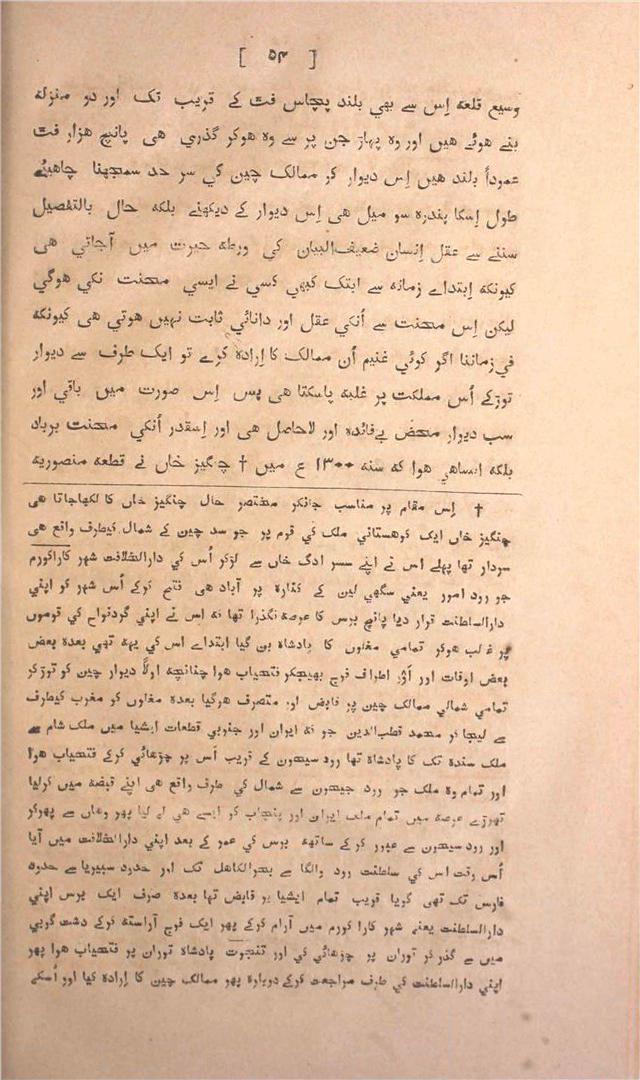 [ ۵۴ ]
وسیع قلعه اِس سے بھی بلند پچاس فٹ کے قریب تک اور دو منزله
بنے هوئے هیں اور وه پہاڑ جن پر سے وه هوکر گذري هی پانچ هزار فٹ
عموداً بلند هیں اِس دیوار کو ممالک چین کي سر حد سمجھنا چاهیئے
طول اِسکا پندره سو میل هی اِس دیوار کے دیکھنے بلکه حال بالتفصیل
سننے سے عقل اِنسان ضعیف‌البیان کي ورطهٔ حیرت میں آجاتي هی
کیونکه اِبتداے زمانه سے ابتک کبھي کسي نے ایسي محنت نکي هوگي
لیکن اِس محنت سے اُنکي عقل اور دانائي ثابت نہیں هوتي هی کیونکه
في‌زماننا اگر کوئي غنیم اُن ممالک کا اِراده کرے تو ایک طرف سے دیوار
توڑکے اُس مملکت پر غلبه پاسکتا هی پس اِس صورت میں باقي اور
سب دیوار محض بے‌فائده اور لاحاصل هی اور اِسقدر اُنکي محنت برباد
بلکه ایساهي هوا که سنه ۱۳۰۰ ع میں † چنگیز خاں نے قطعه منصوریه
† اِس مقام پر مناسب جانکر مختصر حال چنگیز خاں کا لکھاجاتا هی
چنگیز خاں ایک کوهستاني ملک کي قوم پر جو سد چین کے شمال کیطرف واقع هی
سردار تھا پہلے اس نے اپنے سسر ادگ خاں سے لڑکر اُس کي دارالخلافت شہر کاراکورم
جو رود امور یعني سگھي لین کے کناره پر آباد هی فتح کرکے اُس شہر کو اپني
دارالسلطنت قرار دیا پانچ برس کا عرصه نگذرا تھا که اس نے اپني گردنواح کي قوموں
پر غالب هوکر تمامي مغلوں کا پادشاه بن گیا ابتداے اس کي یہه تھي بعده بعض
بعض اوقات اور اَوُر اطراف فوج بھیجکر فتحیاب هوا چنانچه اولاً دیوار چین کو توڑکر
تمامي شمالي ممالک چین پر قابض اور متصرف هوگیا بعده مغلوں کو مغرب کیطرف
لیجا کر محمد قطب‌الدین جو که ایران اور جنوبي قطعات ایشیا میں ملک شام سے
ملک سنده تک کا پادشاه تھا رود سیحون کے قریب اُس پر چڑهائي کرکے فتحیاب هوا
اور تمام وه ملک جو رود جیحون سے شمال کي طرف واقع هی اپنے قبضه میں کرلیا
تھوڑے عرصه میں تمام ملک ایران اور پنجاب کو ایسے هي لے لیا پھر وهاں سے پھرکر
اور رود سیحون سے عبور کر کے ساتھه برس کي عمر کے بعد اپني دارالخلافت میں آیا
اُس وقت اس کي سلطنت رود والگا سے بحرالکاهل تک اور حدود سیبریا سے حدود
فارس تک تھي گویا قریب تمام ایشیا پر قابض تھا بعده صرف ایک برس اپني
دارالسلطنت یعني شہر کارا کورم میں آرام کرکے پھر ایک فوج آراسته کرکے دشت گوبي
میں سے گذر کر توران پر چڑهائي کي اور تنجوت پادشاه توران پر فتحیاب هوا پھر
اپني دارالسلطنت کي طرف مراجعت کرکے دوباره پھر ممالک چین کا اِراده کیا اور اُسکے